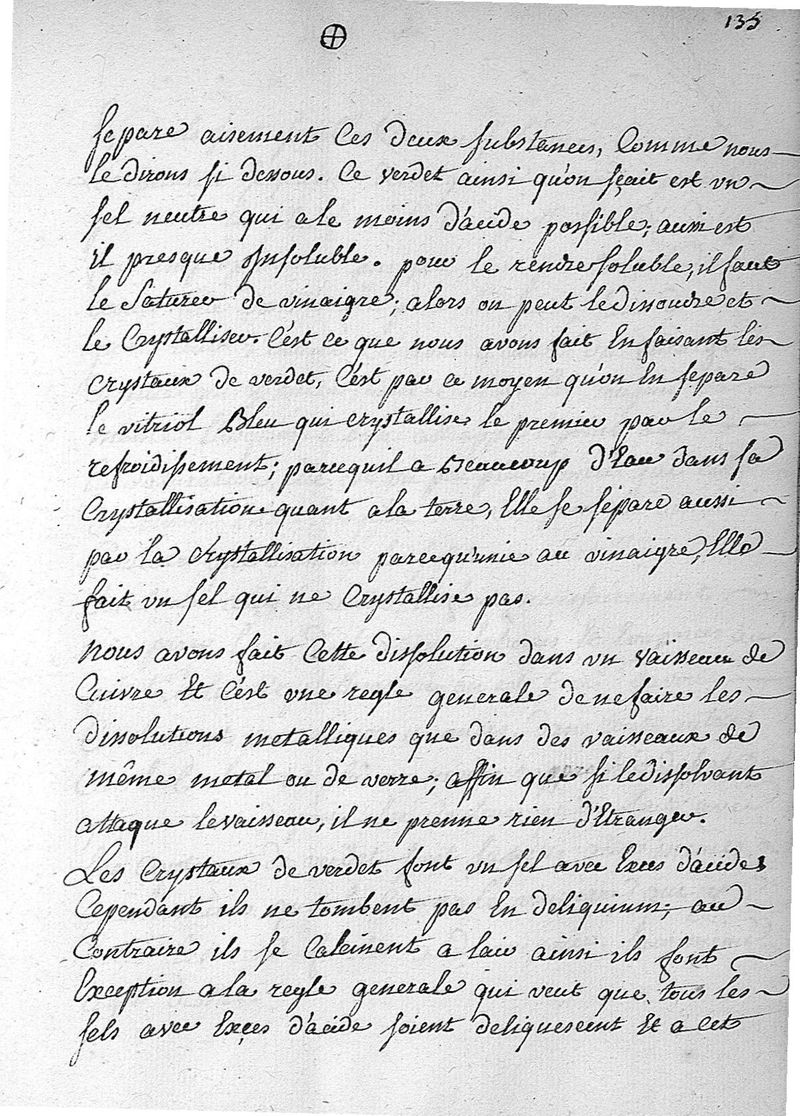 135
separe aisement Ces deux substances, Comme nous
le dirons si dessous. Ce verdet ainsi qu'on sçait est un
sel neutre qui a le moins d'acide possible; aussi est
il presque Insoluble. pour le rendre soluble, il faut
le Saturer de vinaigre; alors on peut le dissoudre et
le Crystalliser. C'est ce que nous avons fait En faisant les
Crystaux de verdet, C'est par ce moyen qu'on En separe
le vitriol Bleu qui crystallise le premier par le
refroidissement; parcequil a Beaucoup d'Eau dans sa
Crystallisation quant a la terre, Elle se sépare aussi
par la Crystallisation parcequ'unie au vinaigre, Elle
fait un sel qui ne Crystallise pas.
Nous avons fait Cette dissolution dans un vaisseau de
Cuivre Et C'est une regle generale de ne faire les
dissolutions metalliques que dans des vaisseaux de
même metal ou de verre; affin que si le dissolvant
attaque le vaisseau, il ne prenne rien d'Etranger.
Les Crystaux de verdet sont un sel avec Exces d'acide
Cependant ils ne tombent pas En deliquium; au
Contraire ils se Calcinent a lair ainsi ils font
Exception a la regle generale qui veut que tous les
sels avec Exçes d'acide soient deliquescent Et a Cet